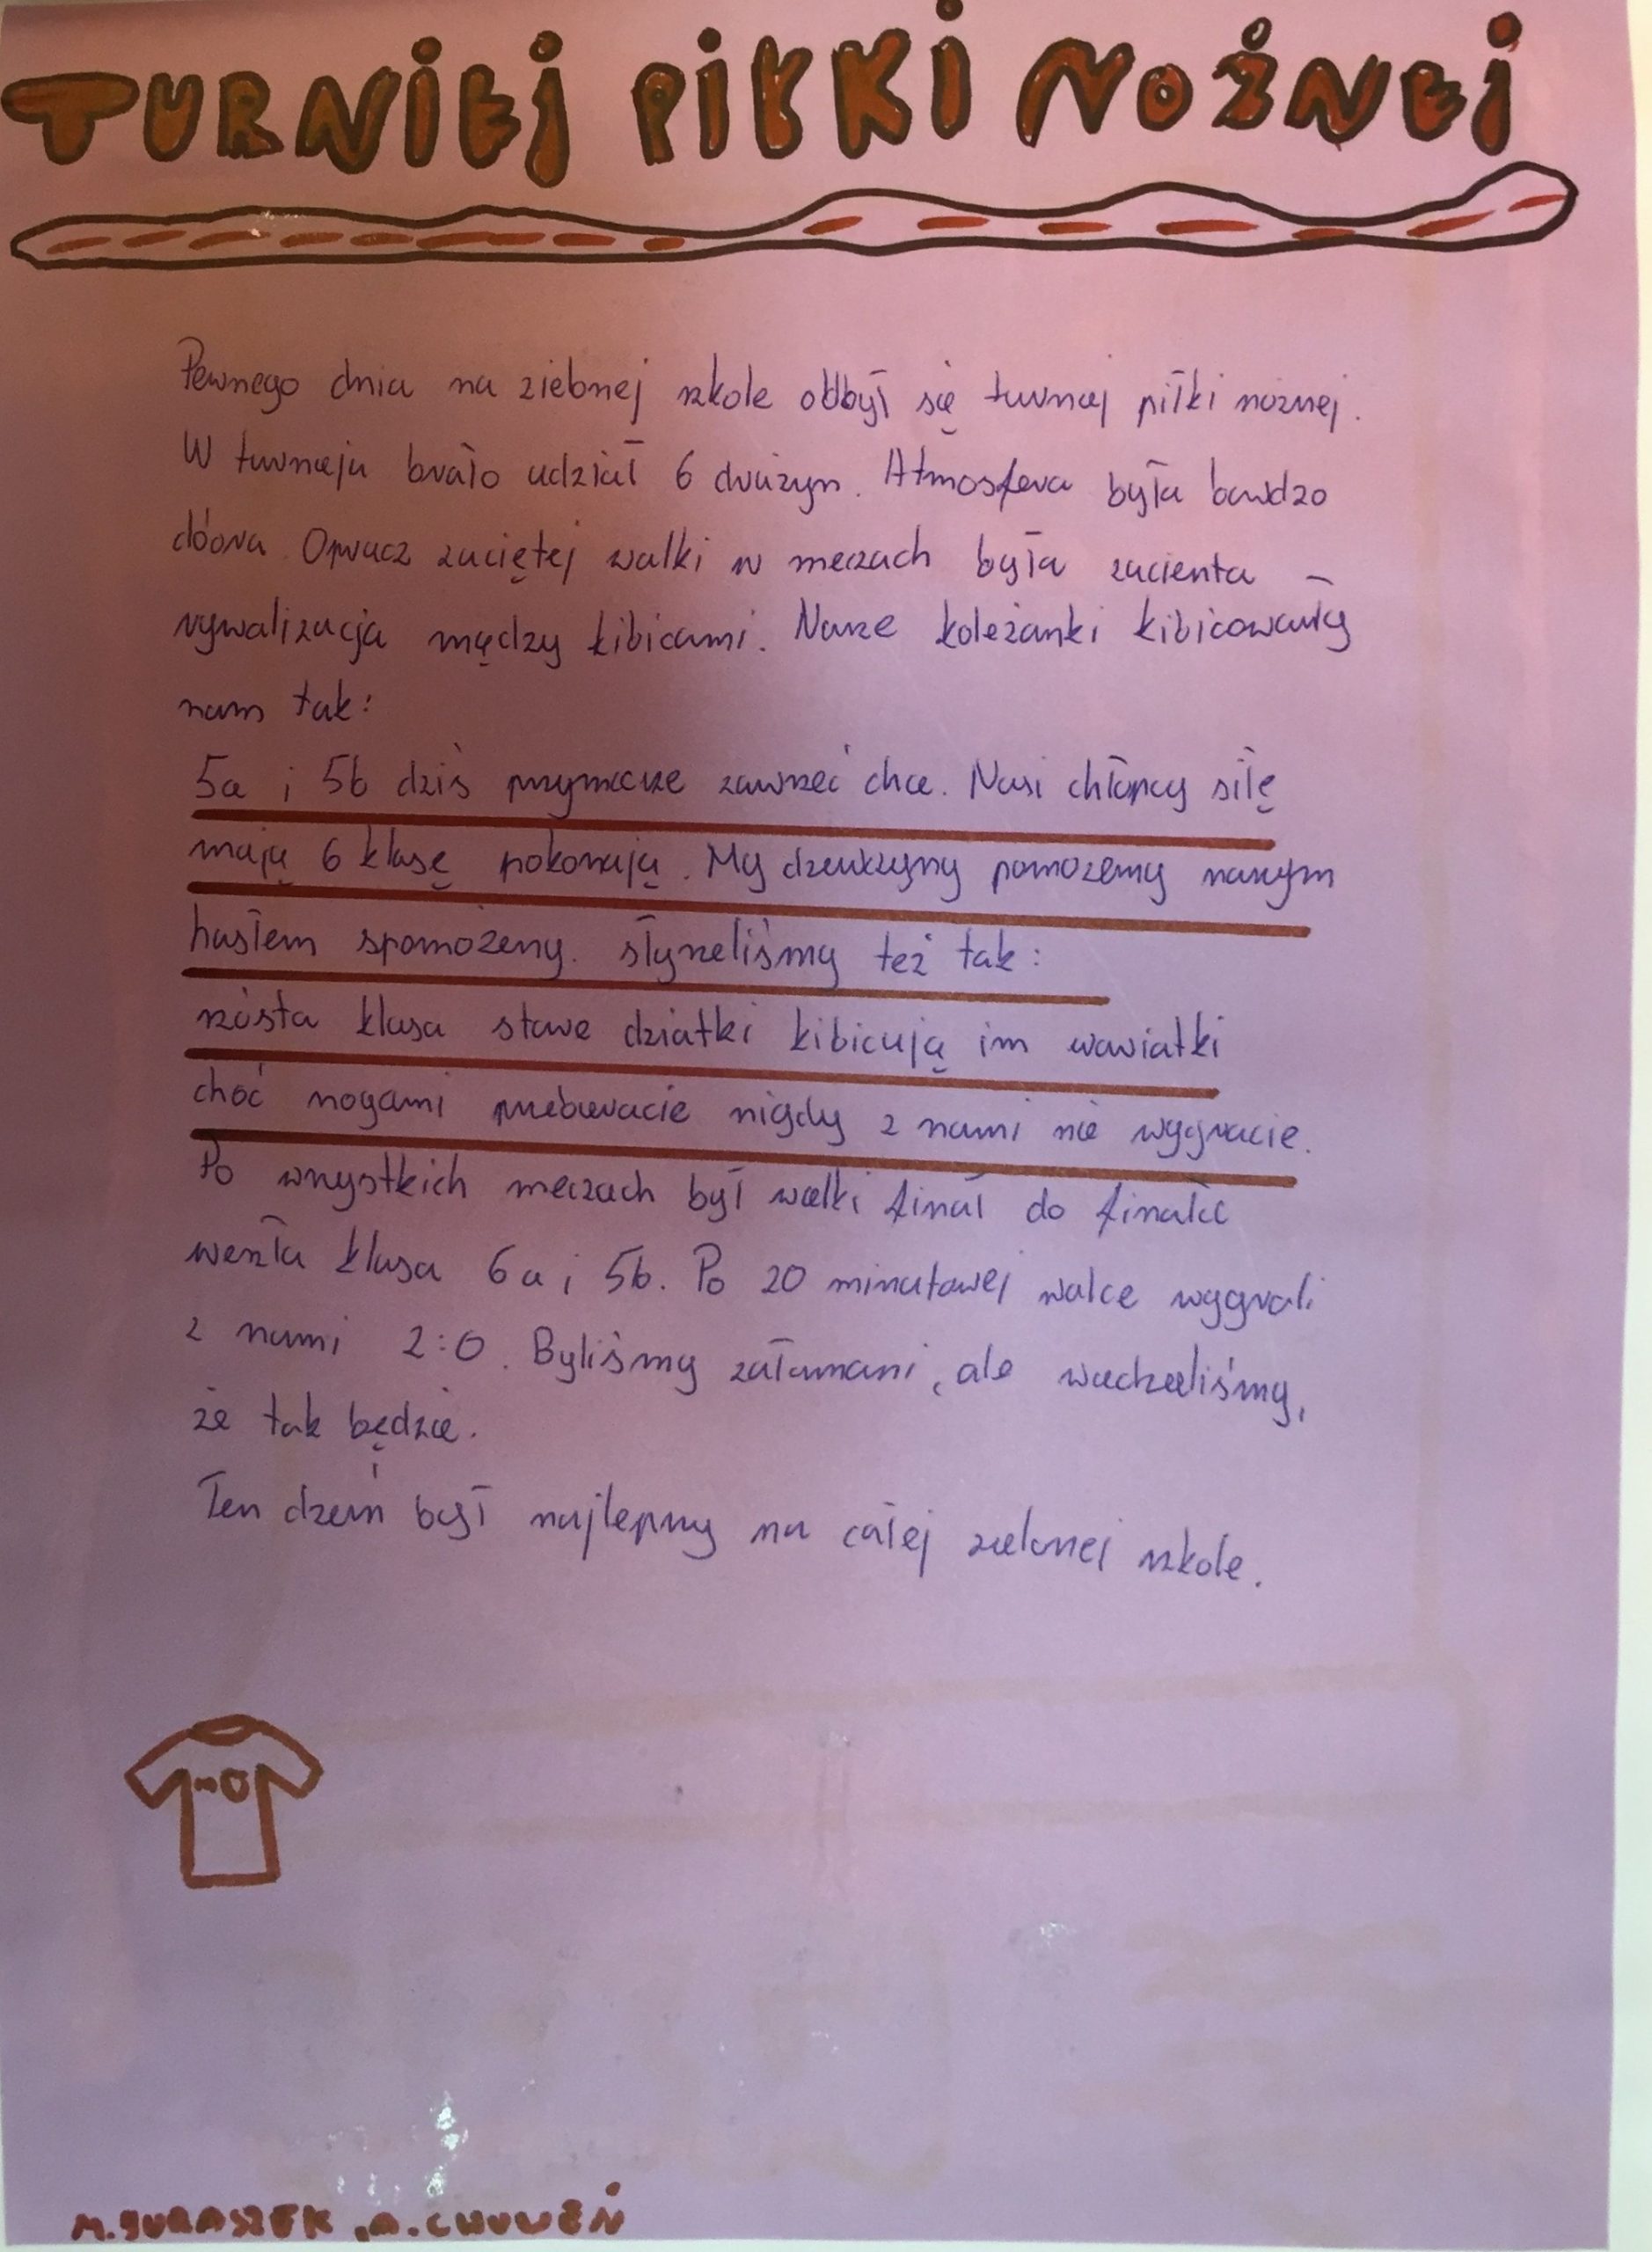 TURNIEJ PIŁKI NOŻNEJ
Pewnego dnia na zielonej szkole odbył się turniej piłki nożnej.
W turnieju brało udział 6 drużyn. Atmosfera była bardzo
dobra. Oprucz zaciętej walki w meczach była zacienta
rywalizacja między kibicami. Nasze koleżanki kibicowały
nam tak:
5a i 5b dziś przymierze zawrzeć chce. Nasi chłopcy siłę
mają 6 klasę pokonają. My dziewczyny pomożemy naszym
hasłem spomożemy. słyszeliśmy też tak:
szósta klasa stare dziatki kibicują im wariatki
choć nogami przebieracie nigdy z nami nie wygracie.
Po wszystkich meczach był wielki finał do finału
weszła klasa 6a i 5b. Po 20 minutowej walce wygrali
z nami 2:0. Byliśmy załamani, ale wiedzieliśmy,
że tak będzie.
Ten dzień był najlepszy na całej zielonej szkole.
M.JURASZEK, A.